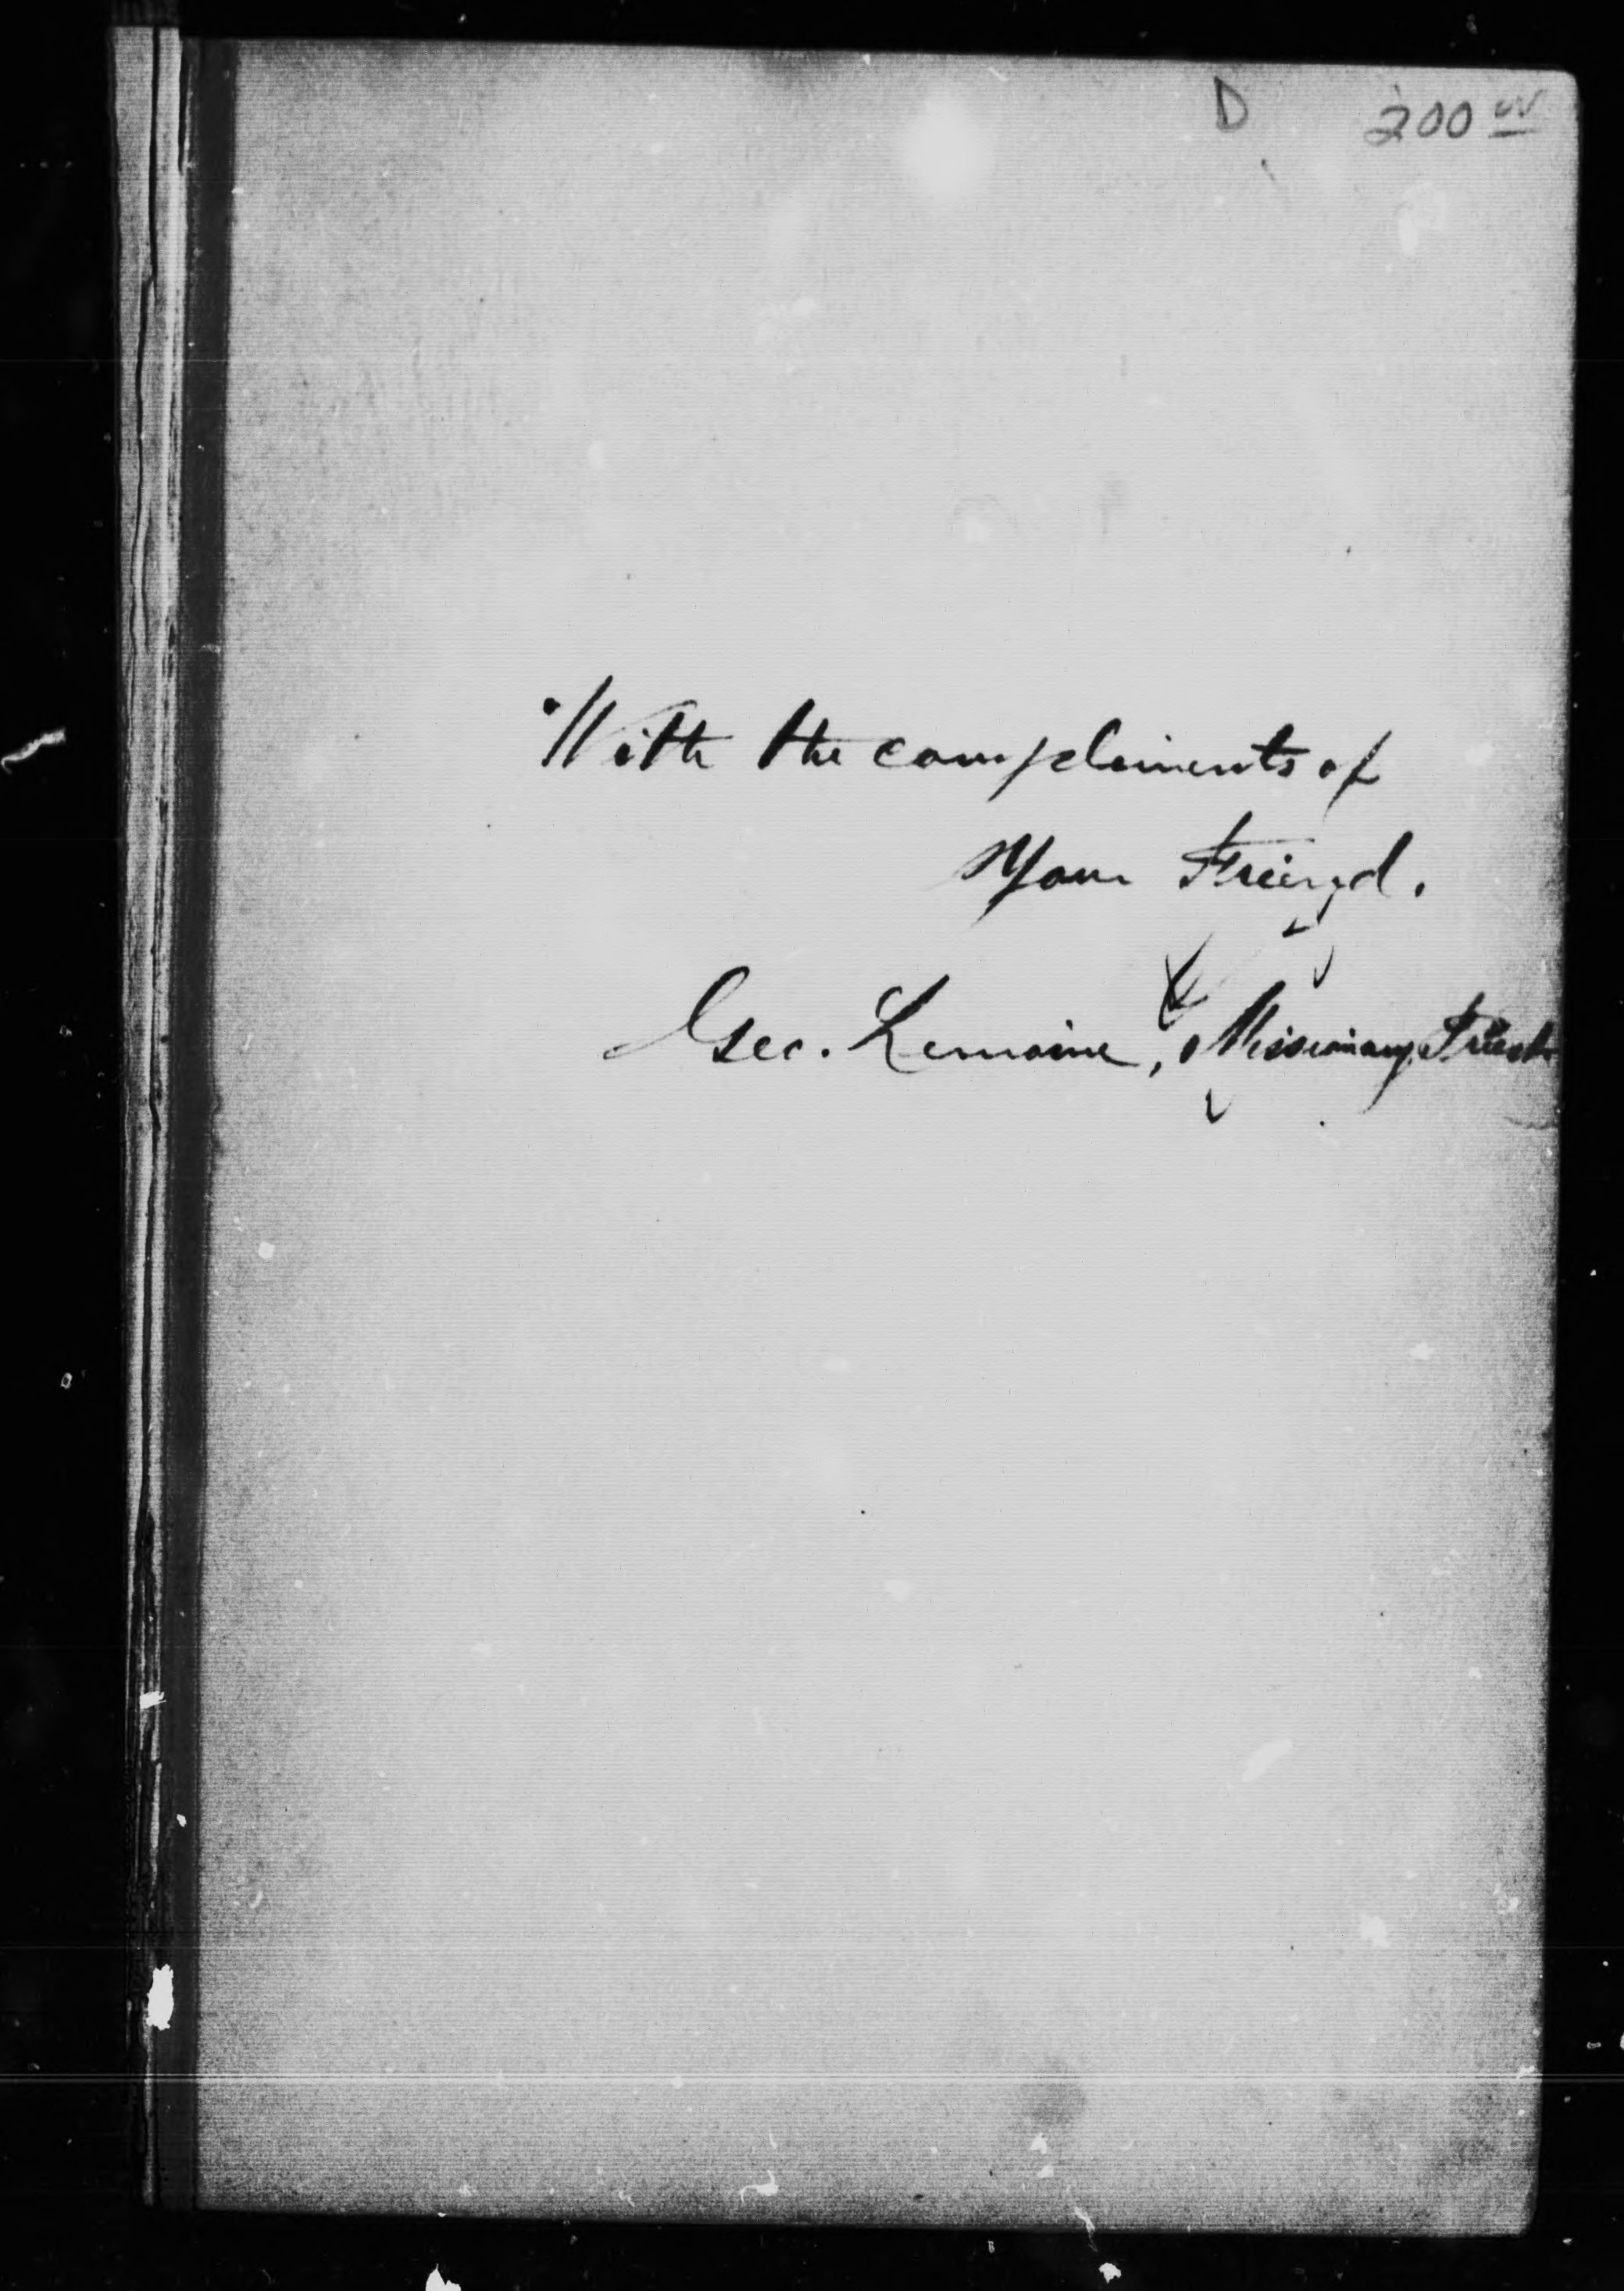 D 200 00
With the compliments of
Your Friend.
Geo. Lemoine, Missionary Priest